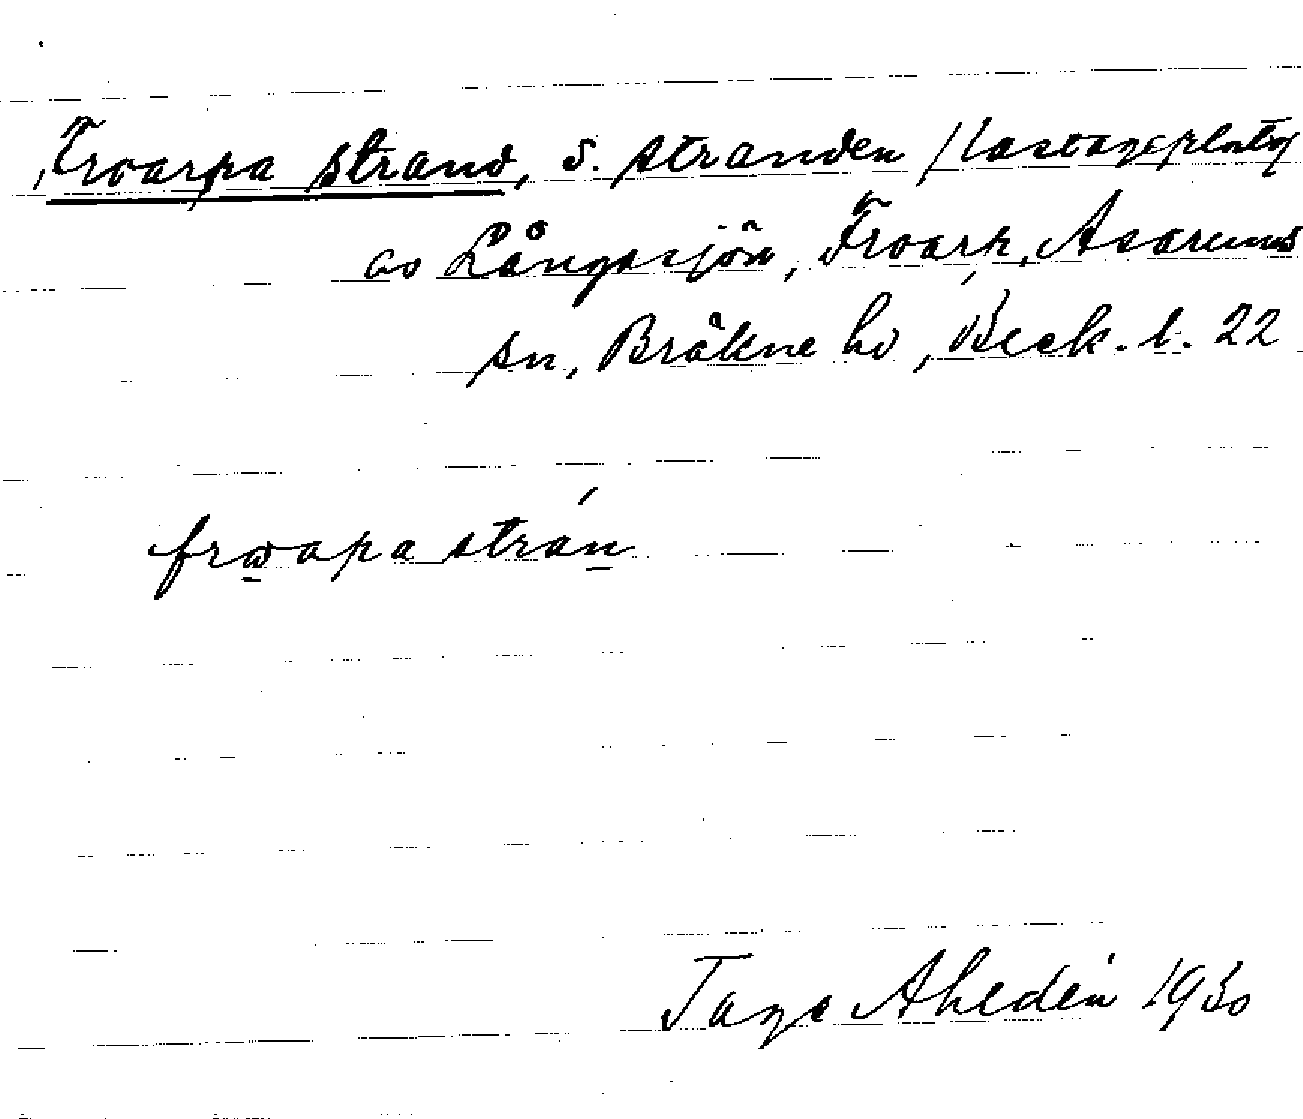 Froarpa strand, s. stranden (lastageplats)
av Långasjön, Froarp, Asarums
sn, Bräkne hd, Beck. l. 22
frωapa strán
Tage Ahldén 1930